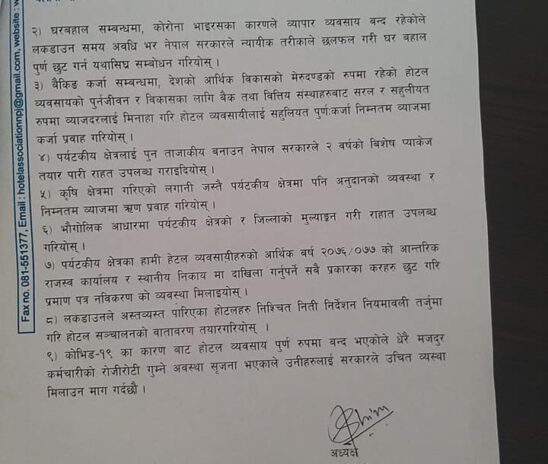 २) घरबहाल सम्बन्धमा, कोरोना भाइरसका कारणले व्यापार व्यवसाय बन्द रहेकोले
लकडाउन समय अवधि भर नेपाल सरकारले न्यायीक तरीकाले छलफल गरी घर बहाल
पुर्ण छुट गर्न यथासिघ्र सम्बोधन गरियोस् ।
३) बैकिङ कर्जा सम्बन्धमा, देशको आर्थिक बिकासको मेरुदण्डको रुपमा रहेको होटल
व्यवसायको पुर्नजीवन र बिकासका लागि बैक तथा वित्तिय संस्थाहरुबाट सरल र सहुलीयत
रुपमा व्याजदरलाई मिनाहा गरि होटल व्यवसायीलाई सहुलियत पुर्ण:कर्जा निम्नतम व्याजमा
कर्जा प्रवाह गरियोस् ।
४) पर्यटकीय क्षेत्रलाई पुन ताजाकीय बनाउन नेपाल सरकारले २ बर्षको बिशेष प्याकेज
तयार पारी राहत उपलब्ध गराइदियोस् ।
५) कृषि क्षेत्रमा गरिएको लगानी जस्तै पर्यटकीय क्षेत्रमा पनि अनुदानको व्यवस्था र
निम्नतम व्याजमा ऋण प्रवाह गरियोस् ।
६) भौगोलिक आधारमा पर्यटकीय क्षेत्रको र जिल्लाको मुल्याङ्कन गरी राहात उपलब्ध
गरियोस् ।
७) पर्यटकीय क्षेत्रका हामी हेटल व्यवसायीहरुको आर्थिक बर्ष २०७६/०७७ को आन्तरिक
राजस्व कार्यालय र स्थानीय निकाय मा दाखिला गर्नुपर्ने सबै प्रकारका करहरु छुट गरि
प्रमाण पत्र नविकरण को व्यवस्था मिलाइयोस् ।
८) लकडाउनले अस्तव्यस्त पारिएका होटलहरु निश्चित निती निर्देशन नियमावली तर्जुमा
गरि होटल सञ्चालनको बाताबरण तयारगरियोस् ।
९) कोभिड-१९ का कारण बाट होटल व्यवसाय पुर्ण रुपमा बन्द भएकोले धेरै मजदुर
कर्मचारीको रोजीरोटी गुम्ने अवस्था सृजना भएकाले उनीहरुलाई सरकारले उचित व्यस्था
मिलाउन माग गर्दछौ ।
अध्यक्ष
Fax no. 081-551377, Email : hotelassociationnpj@gmail.com, website :